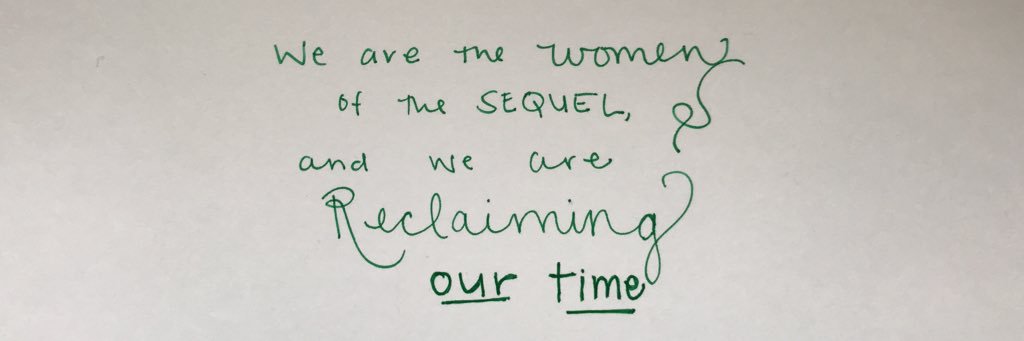 We are the women
of the SEQUEL,
and we are
Reclaiming
our time